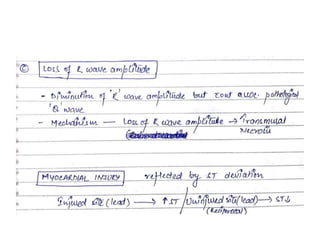 © Loss of R wave amplitude
- Diminution of 'R' wave amplitude but tout assoc. pathological
'Q' wave
- Mechanism — Loss of R wave amplitude → Transmural
Necrosis
MYOCARDIAL INJURY reflected by ST deviation
Injured site (lead) → ↑ST / Uninjured site (lead) → ST↓
(Reciprocal)